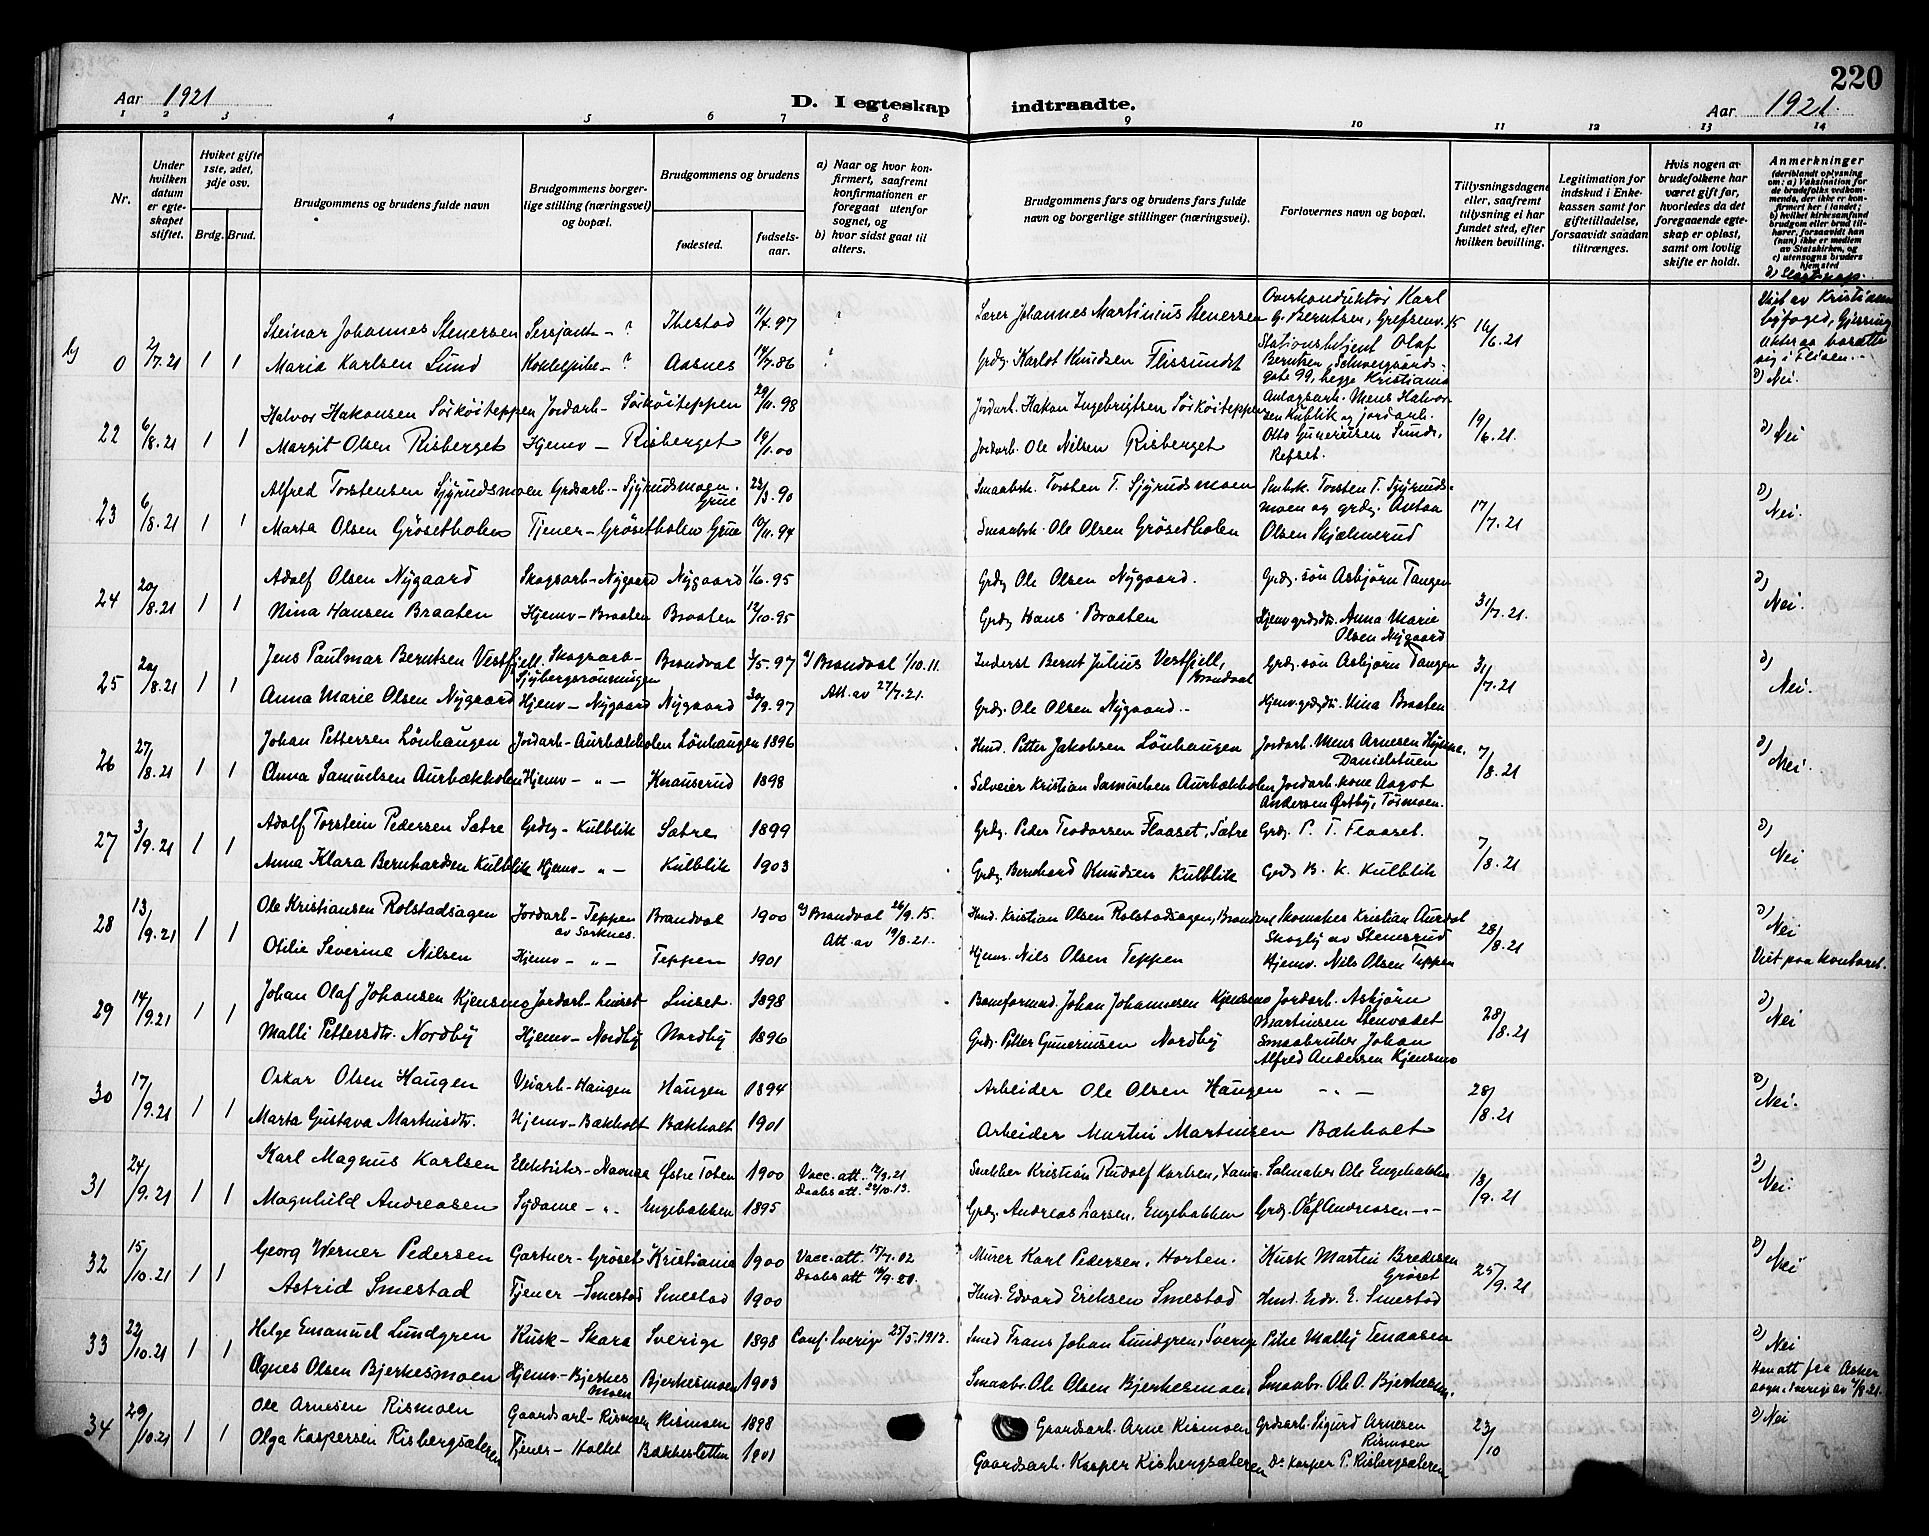 220
Aar 1921
D. I egteskap indtraadte.
Aar 1921.
1 2 3 4 5 6 7 8 9 10 11 12 13 14
Nr.
Under hvilken datum er egteskapet stiftet.
Hvilket gifte 1ste, 2det, 3dje osv.
Brdg. Brud.
Brudgommens og brudens fulde navn
Brudgommens borgerlige stilling (næringsvei) og bopæl.
Brudgommens og brudens
fødested.
fødselsaar.
a) Naar og hvor konfirmert, saafremt konfirmationen er foregaat utenfor sognet, og
b) hvor sidst gaat til alters.
Brudgommens fars og brudens fars fulde navn og borgerlige stillinger (næringsvei).
Forlovernes navn og bopæl.
Tillysningsdagene eller, saafremt tillysning ei har fundet sted, efter hvilken bevilling.
Legitimation for indskud i Enkekassen samt for giftetilladelse, forsaavidt saadan tiltrænges.
Hvis nogen av brudefolkene har været gift før, hvorledes da det foregaaende egteskap er opløst, samt om lovlig skifte er holdt.
Anmerkninger
(deriblandt oplysning om: a) Vaksination for de brudefolks vedkommende, der ikke er konfirmert her i landet; b) hvilket kirkesamfund brudgom eller brud tilhører, forsaavidt han (hun) ikke er medlem av Statskirken, og c) utensogns bruders hjemsted
Steinar Johannes Stenersen Sersjant - ? Ibestad 11/4.97 ? Lærer Johannes Martinius Stenersen Overkonduktør Karl G. Berntsen, Grefsenv. 15 16/6.21 Viet av Kristiania byfoged,
0 2/7.21 1 1 Maria Karlsen Lund Kokkepike - ? Aasnes 14/7.86 ? Grdg. Karlot Knudsen Flissundet Stationsbetjent Olaf Berntsen, Schweigaardsgate 99, begge Kristiania sig i Flisen.- Nei.
22 6/8.21 1 1 Halvor Hakonsen Sörköiteppen Jordarb - Sörköiteppen 20/11.98 Jordarb. Hakon Ingebrigtsen Sörköiteppen Anlægsarb. Mens Halvorsen Kulblik og jordarb. 19/6.21. Nei
Margit Olsen Risberget Hjemv - Risberget 19/1.00 Jordarb. Ole Nilsen Risberget Otto Gunerius­en Sund, Refset.
23 6/8.21 1 1 Alfred Torstensen Sjyrudsmoen Grdsarb - Sjyrudsmoen Grue 22/3.90 Smaabrk. Torsten T. Sjyrudsmoen Smbrk. Torsten T. Sjyrudsmoen og grdg. Anton 17/7.21 Nei.
Marta Olsen Grösetholen Tjener - Grösetholen Grue 10/11.94 Smaabrk. Ole Olsen Grösetholen Olsen Skjælnerud
24 20/8.21 1 1 Adolf Olsen Nygaard Skogsarb - Nygaard Nygaard 1/6.95 Grdg Ole Olsen Nygaard. Grdg. sön Asbjörn Tangen 31/7.21. Nei.
Nina Hansen Braaten Hjemv - Braaten Braaten 12/10.95 Grdg Hans Braaten Hjemv grdgdtr. Anna Marie Olsen Nygaard
25 20/8.21 1 1 Jens Paulmar Berntsen Vestfjell Skogsarb - Sjybergsrönningen Brandval 3/5.97 a) Brandval 1/10.11. Inderst Bernt Julius Vestfjell, Brandval Grdg. sön Asbjörn Tangen 31/7.21 Nei.
Anna Marie Olsen Nygaard Hjemv - Nygaard Nygaard 30/9.97 Att. av 27/7.21. Grdg. Ole Olsen Nygaard.- Hjemv. grdgdtr. Nina Braaten
26 27/8.21 1 1 Johan Pettersen Lönhaugen Jordarb - Aurbækholen Lönhaugen 1896 Hmd. Petter Jakobsen Lönhaugen Jordarb. Mens Arnesen Danielstuen 7/8.21 Nei.
Anna Samuelsen Aurbækholen Hjemv - „ - Knauserud 1898 Selveier Kristian Samuelsen Aurbækholen Jordarb. kone Aagot Andersen Østby, Tösmoen.
27 3/9.21 1 1 Adolf Torstein Pedersen Sætre Grdg - Kulblik Sætre 1899 Grdg. Peder Teodorsen Flaaset, Sætre Grdg. P. T. Flaaset. 7/8.21 Nei
Anna Klara Bernhardsen Kulblik Hjemv - „ - Kulblik 1903 Grdg. Bernhard Knudsen Kulblik Grdg B. K. Kulblik
28 13/9.21 1 1 Ole Kristiansen Rolstadsagen Jordarb - Teppen av Sorknes. Brandval 1900 a) Brandval 26/9.15. Hmd. Kristian Olsen Rolstadsagen, Brandval Skomaker Kristian Skogby av Stemsrud 28/8.21 Nei
Otilie Severine Nilsen Hjemv - „ - Teppen 1901 Att. av 19/8.21. Hjemv. Nils Olsen Teppen Hjemv. Nils Olsen Teppen Viet paa kontoret.
29 14/9.21 1 1 Johan Olaf Johansen Kjensmo Jordarb - Linset Linset. 1898 Bomformand. Johan Johannesen Kjensmo Jordarb. Asbjörn Martinsen Stenvadet 28/8.21 Nei
Malli Pettersdtr. Nordby Hjemv - Nordby Nordby 1896 Grdg. Petter Gunerius­en Nordby Smaabruker Johan Alfred Andersen Kjensmo
30 17/9.21 1 1 Oskar Olsen Haugen Veiarb - Haugen Haugen 1894 Arbeider Ole Olsen Haugen - „ - 28/8.21 Nei.
Marta Gustava Martinsdtr. Hjemv - Bækholt Bækholt 1901 Arbeider Martin Martinsen Bækholt
31 24/9.21 1 1 Karl Magnus Karlsen Østre Toten 1900 Vacc. att. Snekker Kristian Rudolf Karlsen, Salmaker Ole Engebakken 18/9.21 Nei.
Magnhild Andreasen Sydame - „ - Engebakken 1895 Daabs att. 22/10.13. Grdg. Andreas Larsen, Engebakken Grdg. Olaf Andreasen - „ -
32 15/10.21 1 1 Georg Werner Pedersen Gartner - Gröset Kristiania 1900 Vacc. att. 15/7.02 Murer Karl Pedersen, Horten. Kusk Martin Bredesen Gröset 25/9.21 Nei
Astrid Smestad Tjener - Smestad Smestad 1900 Daabs att Hmd. Edvard Eriksen Smestad Hmd. Edv. E. Smestad
33 22/10.21 1 1 Helge Emanuel Lundgren Kusk - Skara Sverige 1898 Conf. Sverige 25/5.1912. Smed Frans Johan Lundgren, Sverige Pike Mally Tenaasen Nei
Agnes Olsen Bjerkesmoen Hjemv - Bjerkesmoen Bjerkesmoen 1903 Smaabr. Ole Olsen Bjerkesmoen Smaabr. Ole O. Bjerkesm. Hav att fra Asker sogn i Sverige av 7/8.21.
34 29/10.21 1 1 Ole Arnesen Rismoen Gaardsarb - Rismoen Rismoen 1898 Gaardsarb. Arne Rismoen Grdsarb. Sigurd Arnesen Rismoen 23/10 Nei
Olga Kaspersen Risbergsæteren Tjener - Holtet Bækkesletten 1901 Gaardsarb. Kasper Risbergsæteren Do Kasper P. Risbergsæteren